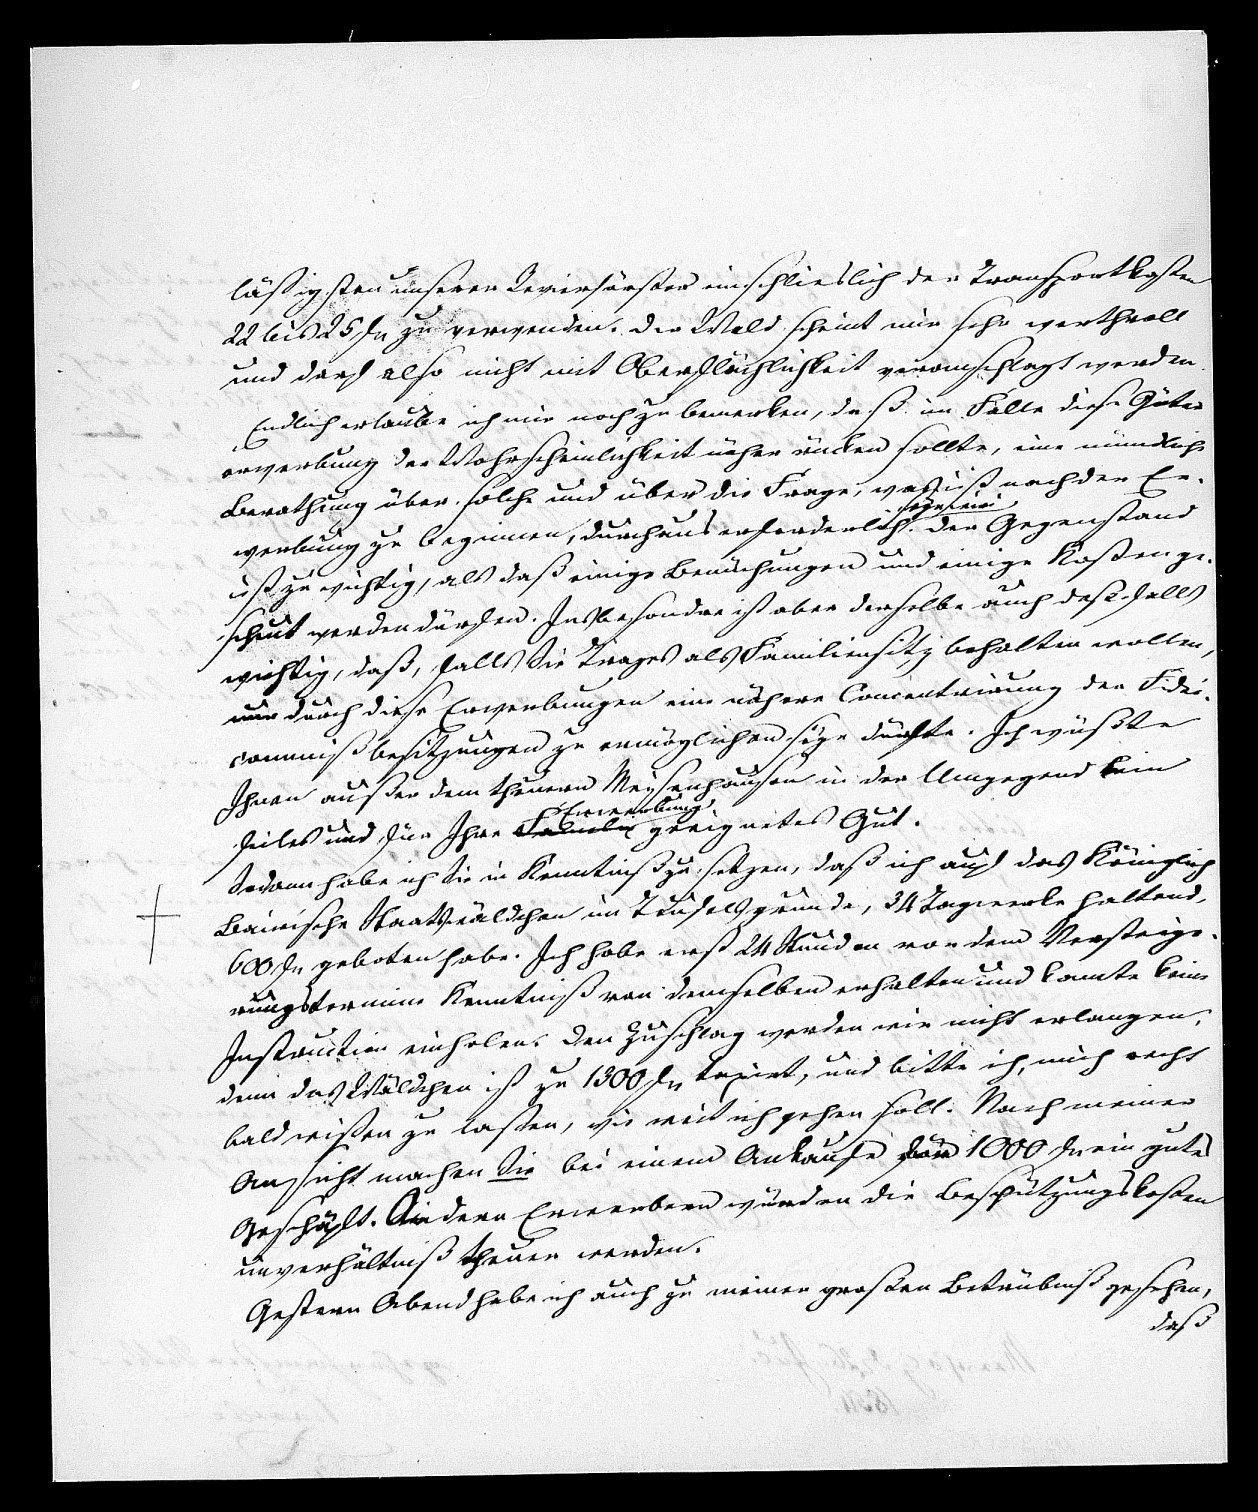 läßigsten unserer Revierförster einschlieslich der Transportkosten
22 bis 25 fr zu verwenden. Der Wald scheint mir sehr werthvoll
und darf also nicht mit Oberflächlichkeit veranschlagt werden.
Endlich erlaube ich mir noch zu bemerken, daß im Falle diese Güter
erwerbung der Wahrscheinlichkeit näher rücken sollte, eine mündliche
Berathung über solche und über die Frage, was ist nach der Er-
werbung zu beginnen, durchaus erforderlich seyn wird. Der Gegenstand
ist zu wichtig, als daß einige Bemühungen und einige Kosten ge-
scheut werden dürfen. Insbesondre ist aber derselbe auch deßfalls
wichtig, daß, falls Sie Trages als Familiensitz behalten wollen,
nur durch diese Erwerbungen eine nähere Concentrirung der Fidei-
commißbesitzungen zu ermöglichen seyn dürfte. Ich wüßte
Ihnen außer dem theuern in der Umgegend kein
feiles und für Ihre Familie Erwerbung geeignetes Gut.
Sodann habe ich Sie in Kenntniß zu setzen, daß ich auf das Königlich
Bairische Staatswäldchen im Teufelsgrunde, 34 Tagwerke haltend,
600 fr geboten habe. Ich habe erst 24 Stunden vor dem Versteige-
rungstermine Kenntniß von demselben erhalten und konnte keine
Instruction einholen. Den Zuschlag werden wir nicht erlangen,
denn das Wäldchen ist zu 1300 fr taxirt, und bitte ich, mich recht
bald wissen zu lassen, wie weit ich gehen soll. Nach meiner
Ansicht machen Sie bei einem Ankaufe für 1000 fr ein gutes
Geschäft. Andern Erwerbern würden die Beschützungskosten
unverhältniß theuer werden.
Gestern Abend habe ich auch zu meiner großen Betrübniß gesehen,
daß